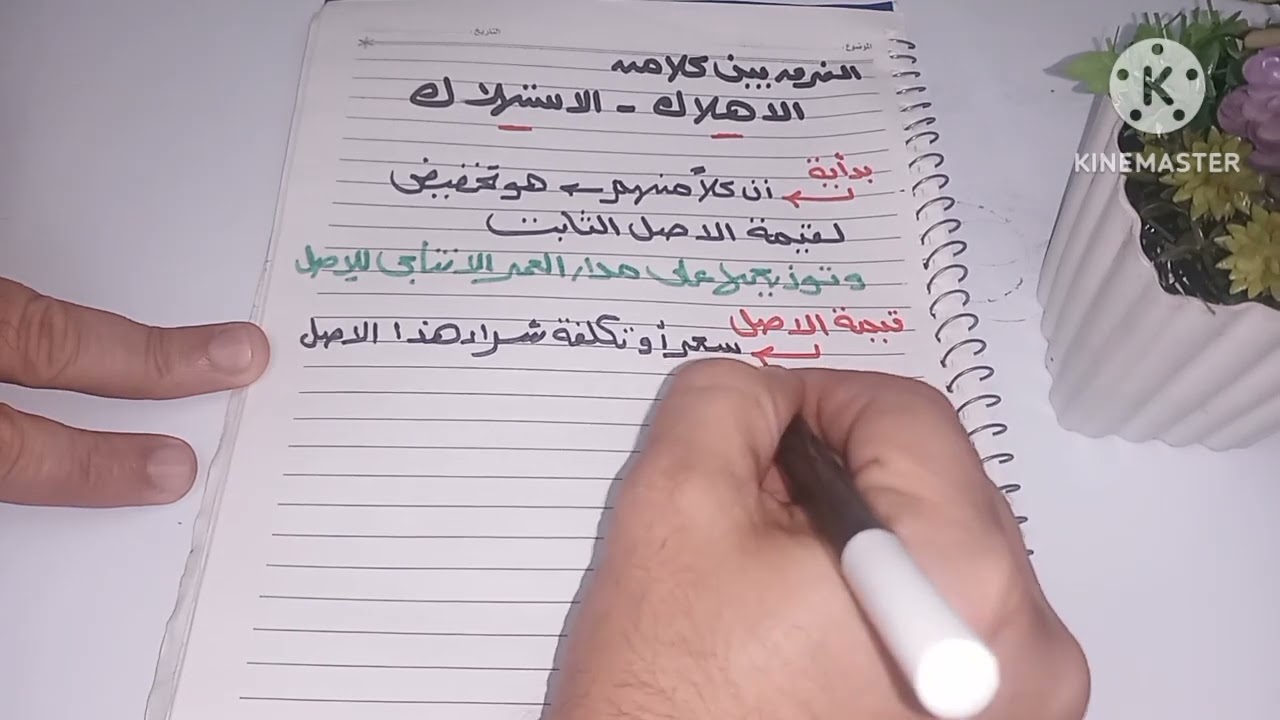 الموضوع: التاريخ:
الفرق بين كلا من
الاهلاك - الاستهلاك
بدأية
أن كلاً منهم هو تخفيض
لقيمة الاصل الثابت
وتوزيعها على مدار العمر الانتاجى للاصل
قيمة الاصل
سعر أو تكلفة شراء هذا الاصل
KINEMASTER